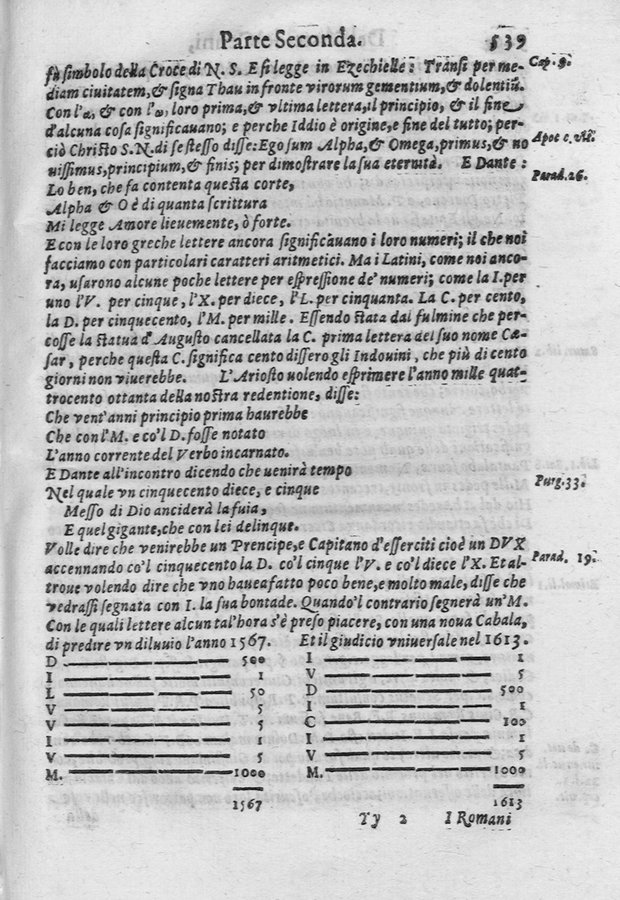 Parte Seconda. 539
fù simbolo della Croce di N. S. E si legge in Ezechielle: Transi per me- Cap. 9.
diam ciuitatem, & signa Thau in fronte virorum gementium, & dolentiũ.
Con l'α, & con l'ω, loro prima, & vltima lettera, il principio, & il fine
d'alcuna cosa significauano; e perche Iddio è origine, e fine del tutto; per-
ciò Christo S. N. di se stesso disse: Ego sum Alpha, & Omega, primus, & no Apoc c. vlt.
uissimus, principium, & finis; per dimostrare la sua eternità. E Dante: Parad. 26.
Lo ben, che fa contenta questa corte,
Alpha & O è di quanta scrittura
Mi legge Amore lieuemente, ò forte.
E con le loro greche lettere ancora significàuano i loro numeri; il che noi
facciamo con particolari caratteri aritmetici. Ma i Latini, come noi anco-
ra, usarono alcune poche lettere per espressione de' numeri; come la I. per
uno l'V. per cinque, l'X. per diece, l'L. per cinquanta. La C. per cento,
la D. per cinquecento, l'M. per mille. Essendo stata dal fulmine che per-
cosse la statua d'Augusto cancellata la C. prima lettera del suo nome Cæ-
sar, perche questa C. significa cento dissero gli Indouini, che più di cento
giorni non viuerebbe. L'Ariosto uolendo esprimere l'anno mille quat-
trocento ottanta della nostra redentione, disse:
Che vent'anni principio prima haurebbe
Che con l'M. e co'l D. fosse notato
L'anno corrente del Verbo incarnato.
E Dante all'incontro dicendo che uenirà tempo
Nel quale vn cinquecento diece, e cinque Purg. 33.
Messo di Dio anciderà la fuia,
E quel gigante, che con lei delinque.
Volle dire che venirebbe un Prencipe, e Capitano d'esserciti cioè un DVX
accennando co'l cinquecento la D. co'l cinque l'V. e co'l diece l'X. Et al- Parad. 19.
troue volendo dire che vno hauea fatto poco bene, e molto male, disse che
vedrassi segnata con I. la sua bontade. Quando'l contrario segnerà un'M.
Con le quali lettere alcun tal'hora s'è preso piacere, con una noua Cabala,
di predire vn diluuio l'anno 1567. Et il giudicio vniuersale nel 1613.
D 500 I 1
I 1 V 5
L 50 D 500
V 5 I 1
V 5 C 100
I 1 I 1
V 5 V 5
M. 1000 M. 1000
1567 1613
Yy 2 I Romani